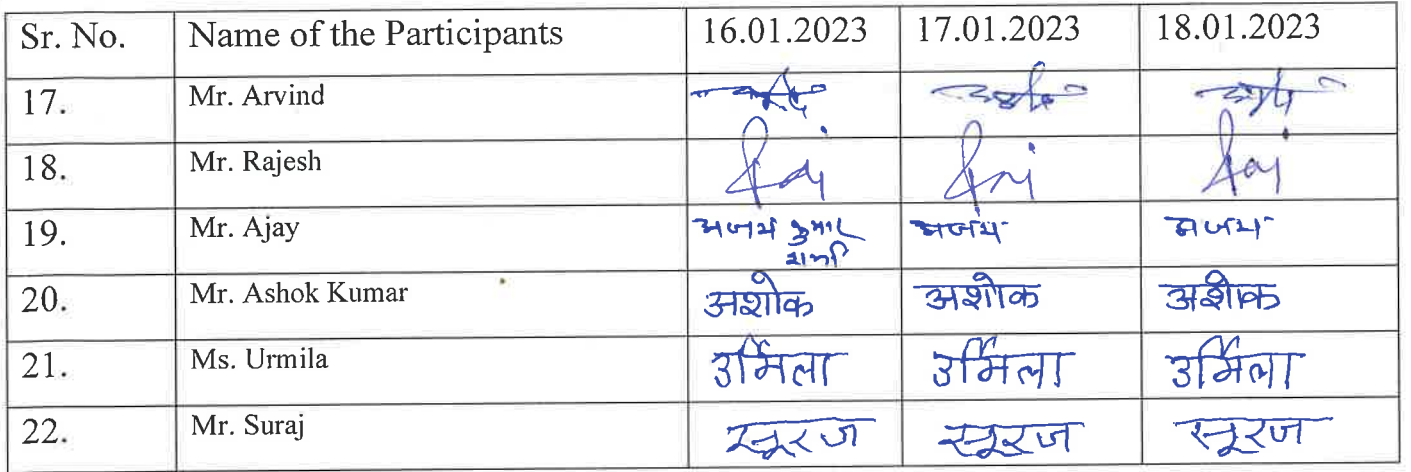 Sr. No. Name of the Participants 16.01.2023 17.01.2023 18.01.2023
17. Mr. Arvind
18. Mr. Rajesh
19. Mr. Ajay अजय कुमार अजय अजय
शर्मा
20. Mr. Ashok Kumar अशोक अशोक अशोक
21. Ms. Urmila उर्मिला उर्मिला उर्मिला
22. Mr. Suraj सूरज सूरज सूरज